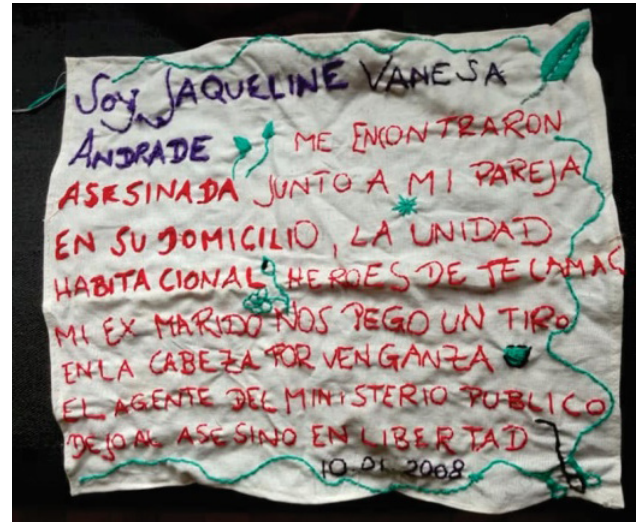 Soy JAQUELINE VANESA
ANDRADE ME ENCONTRARON
ASESINADA JUNTO A MI PAREJA
EN SU DOMICILIO, LA UNIDAD
HABITACIONAL HEROES DE TECAMAC
MI EX MARIDO NOS PEGO UN TIRO
EN LA CABEZA POR VENGANZA
EL AGENTE DEL MINISTERIO PUBLICO
DEJO AL ASESINO EN LIBERTAD
10.01.2008